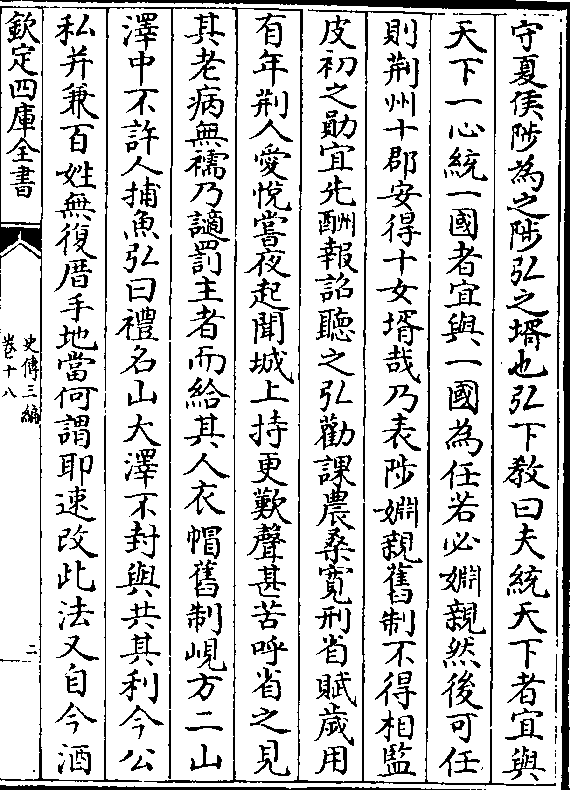 守夏侯陟為之陟弘之壻也弘下教曰夫統天下者宜與
天下一心統一國者宜與一國為任若必姻親然後可任
則荆州十郡安得十女壻哉乃表陟姻親舊制不得相監
皮初之勛宜先酬報詔聽之弘勸課農桑寛刑省賦歲用
有年荆人愛悅嘗夜起聞城上持更歎聲甚苦呼省之見
其老病無襦乃謫罰主者而給其人衣帽舊制峴方二山
澤中不許人捕魚弘曰禮名山大澤不封與共其利今公
私并兼百姓無復厝手地當何謂耶速改此法又自今酒
欽定四庫全書
史傳三編
卷十八
二